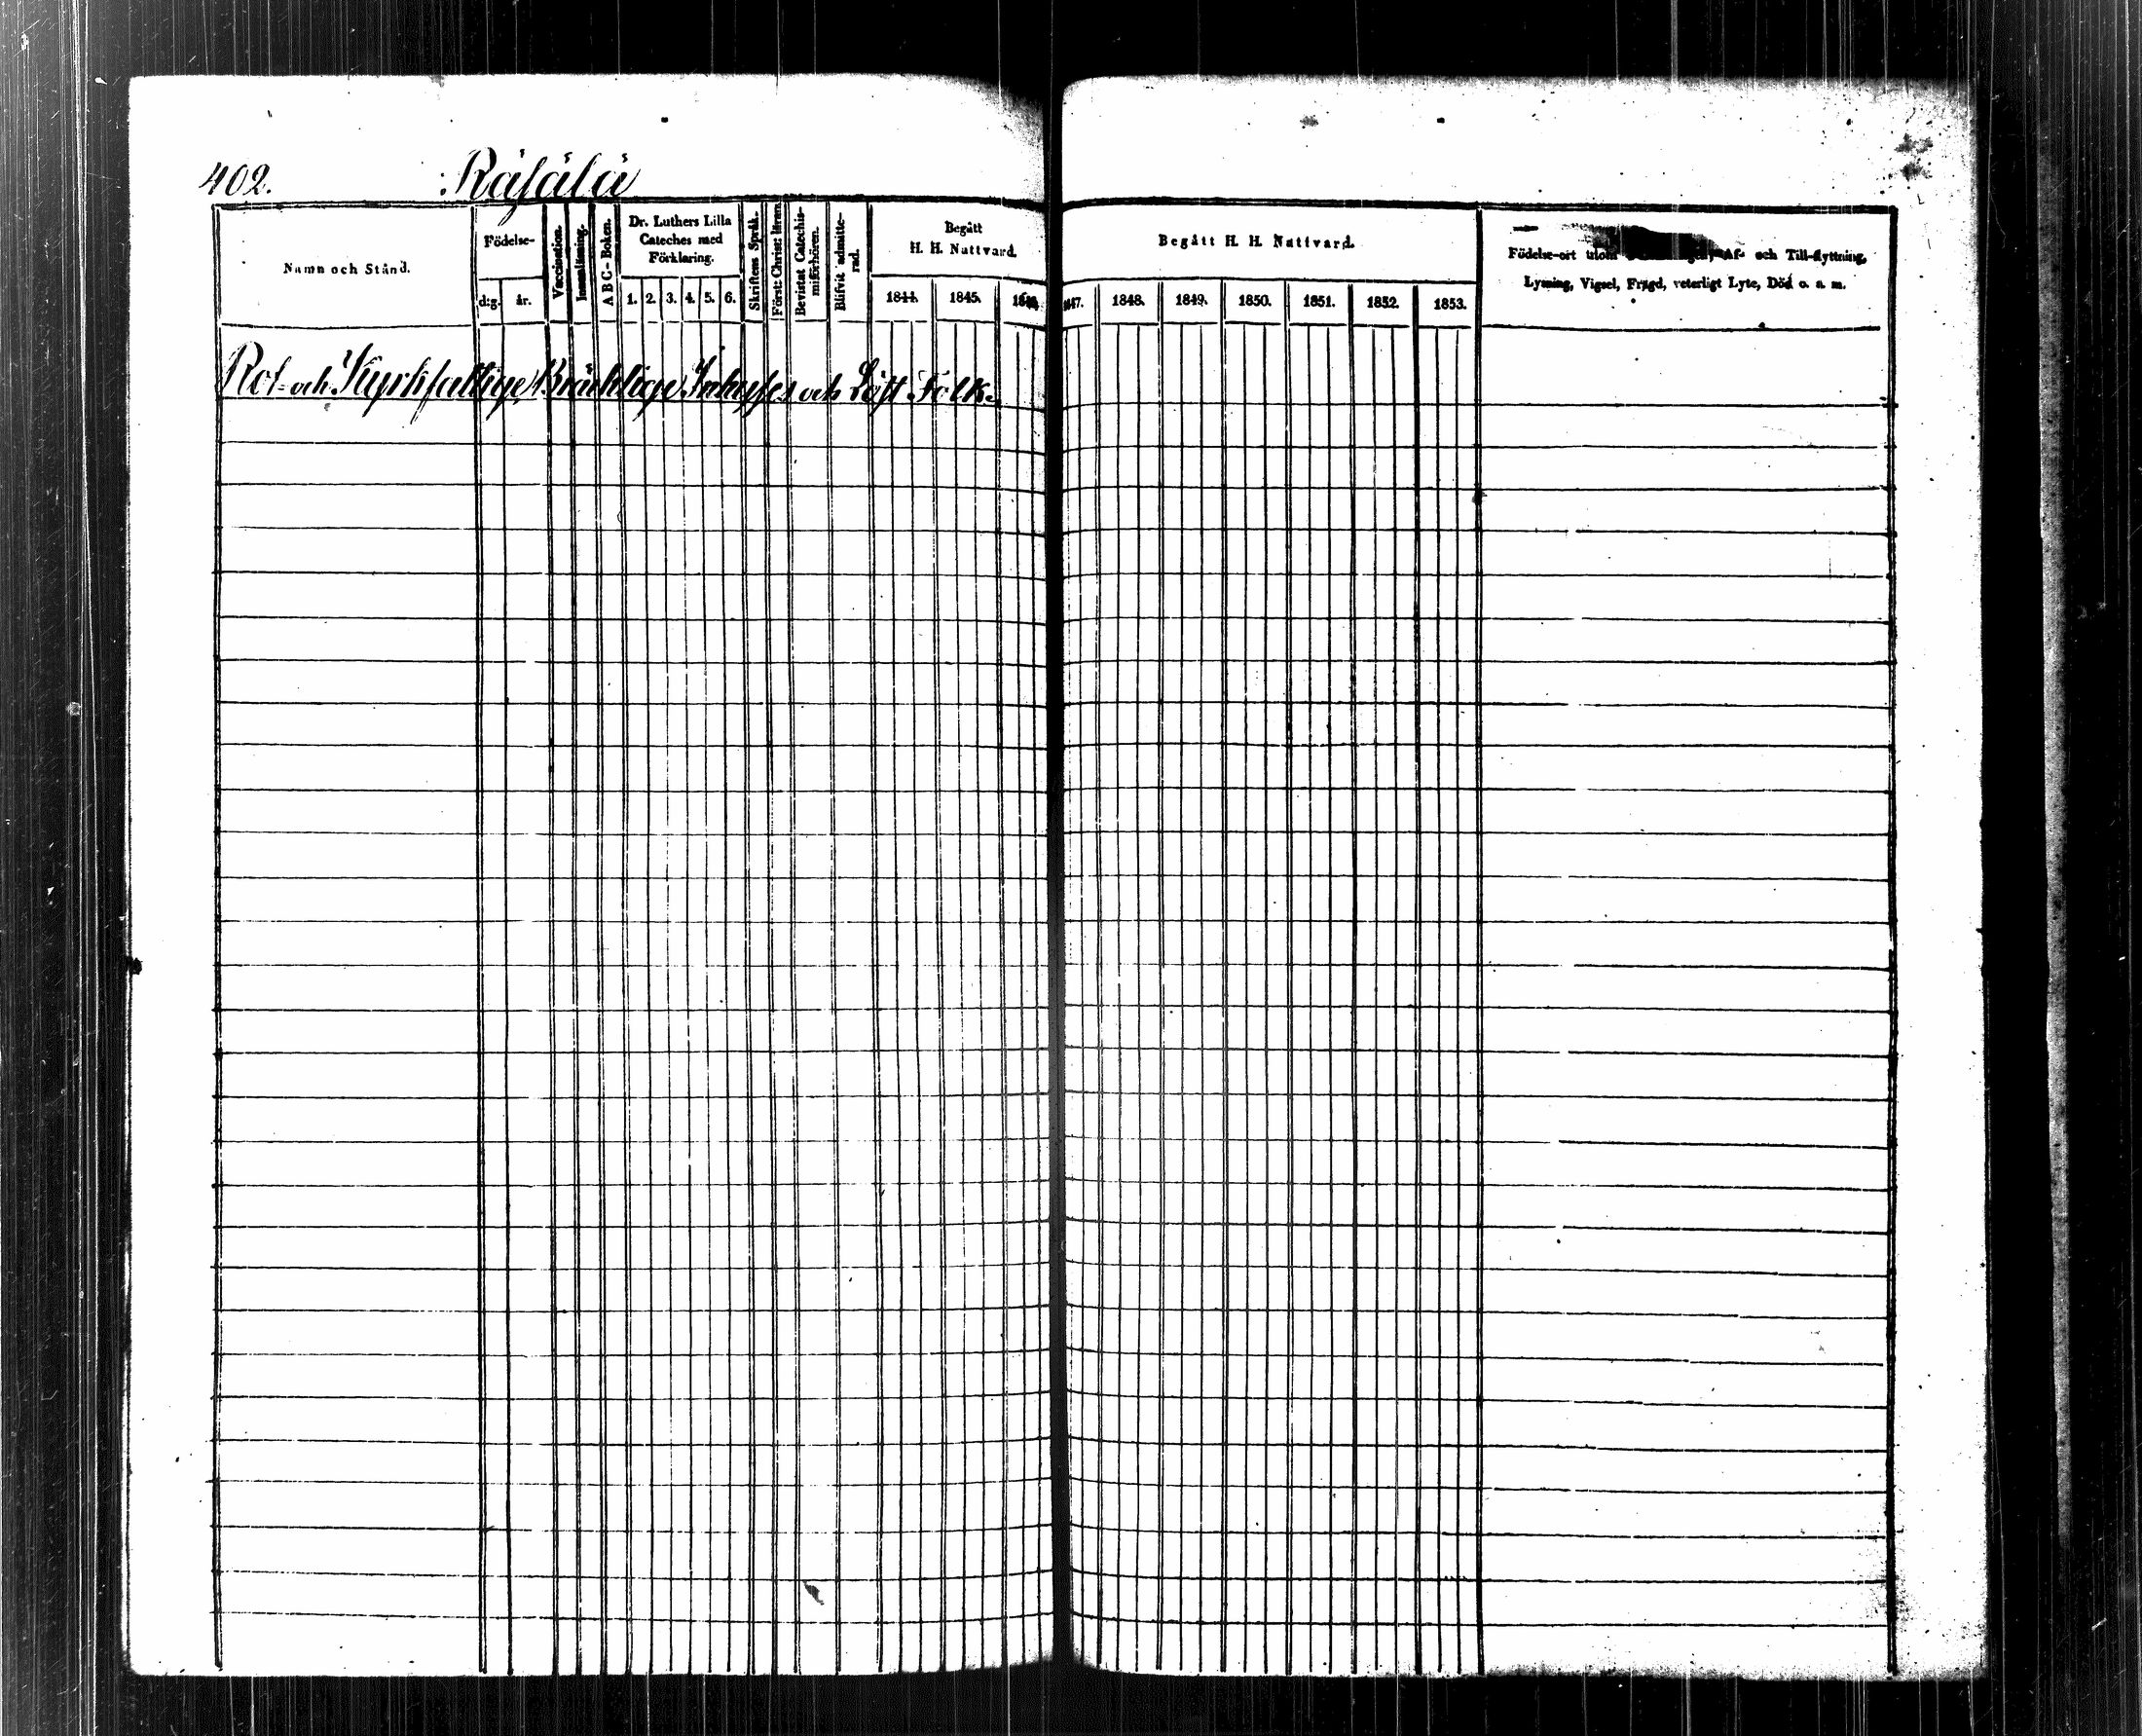 402. Räfälä
Namn och Stånd.
Födelse-
d:g.
år.
Vaccination.
Innanläsning.
A B C-Boken.
Dr. Luthers Lilla
Cateches med
Förklaring.
1. 2. 3. 4. 5. 6.
Skriftens Språk.
Bevistat Catechis-
miförhören.
Blifvit admitte-
rad.
Begått
H. H. Nattvard.
1844. 1845. 1846.
Begått H. H. Nattvard.
1847. 1848. 1849. 1850. 1851. 1852. 1853.
Födelse-ort utom Af- och Till-flyttning,
Lysning, Vigsel, Frägd, veterligt Lyte, Död o. s. m.
Rot- och Kyrkfattige, Bräcklige Inhyses och Löst Folk.